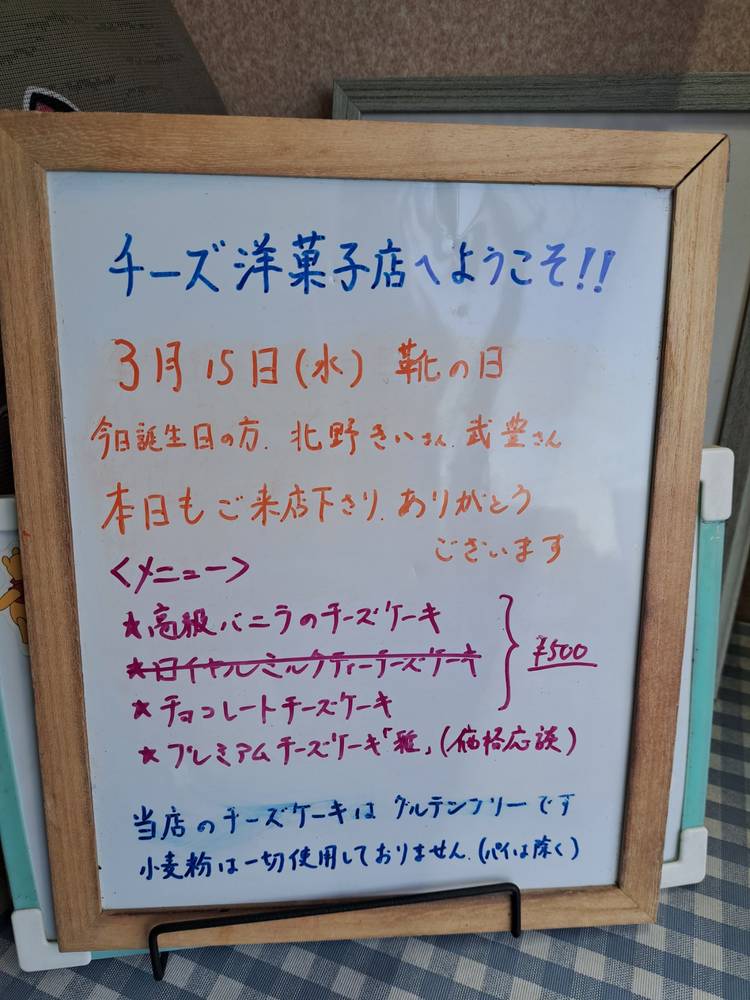 チーズ洋菓子店へようこそ!!
3月15日(水) 靴の日
今日誕生日の方. 北野きいさん. 武豊さん
本日もご来店下さり. ありがとう
ございます
<メニュー>
★高級バニラのチーズケーキ
★ロイヤルミルクティーチーズケーキ
¥500
★チョコレートチーズケーキ
★プレミアムチーズケーキ「雅」(価格応談)
当店のチーズケーキは グルテンフリーです
小麦粉は一切使用しておりません.(パイは除く)